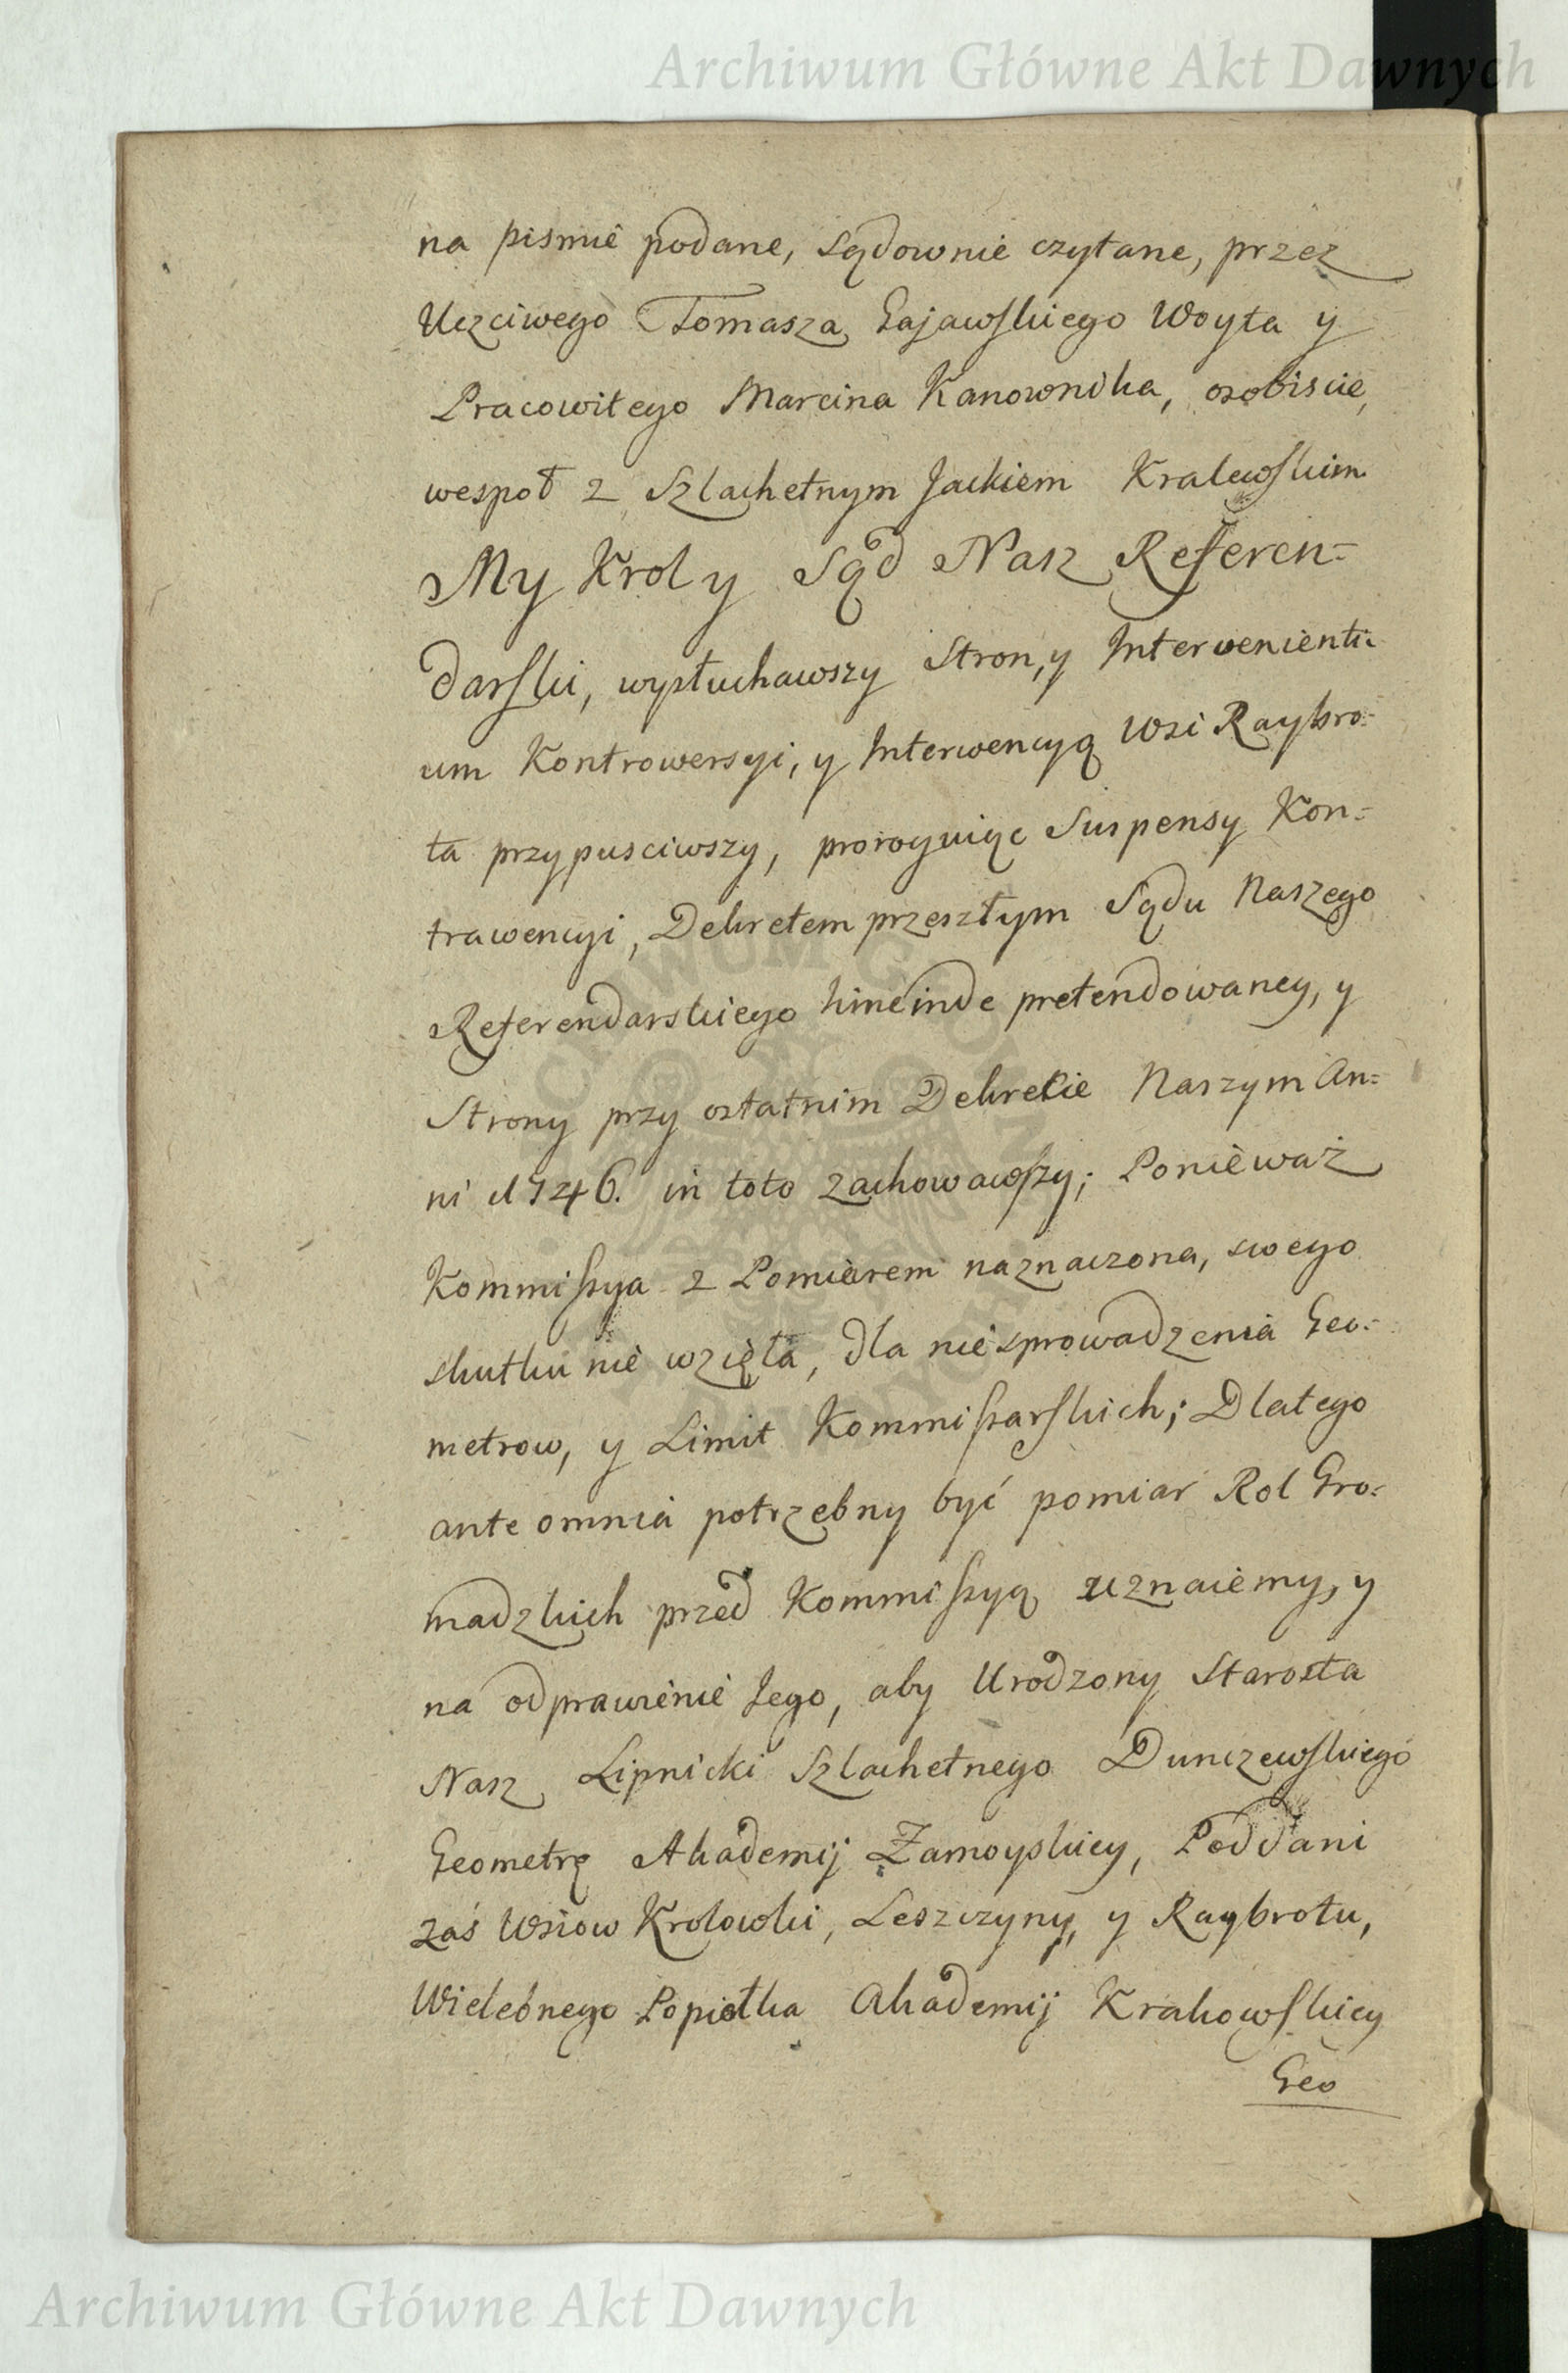 Archiwum Główne Akt Dawnych
na pismie podane, sądownie czytane, przez
Uczciwego Tomasza Gajawskiego Woyta y
Pracowitego Marcina Kanownika, osobiscie,
wespoł z Szlachetnym Jackiem Kralewskim
My Krol y Sąd Nasz Referen=
darski, wysłuchawszy Stron, y Intervenienti=
um Kontrowersyi, y Interwencyą Wsi Raybro=
ta przypusciwszy, proroguiąc Suspensy Kon=
trawencyi, Dekretem przeszłym Sądu Naszego
Referendarskiego hincinde pretendowaney, y
Strony przy ostatnim Dekrecie Naszym An=
ni 1746. in toto zachowawszy; Ponieważ
Kommissya z Pomiarem naznaczona, swego
skutku nie wzięła, dla niesprowadzenia Geo=
metrow, y Limit Kommissarskich; Dlatego
ante omnia potrzebny być pomiar Rol Gro=
madzkich przed Kommissyą uznaiemy, y
na odprawienie Jego, aby Urodzony Starosta
Nasz Lipnicki Szlachetnego Dunczewskiego
Geometrę Akademij Zamoyskiey, Poddani
zaś Wsiow Krolowki, Leszczyny, y Raybrotu,
Wielebnego Popiołka Akademij Krakowskiey
Geo
Archiwum Główne Akt Dawnych